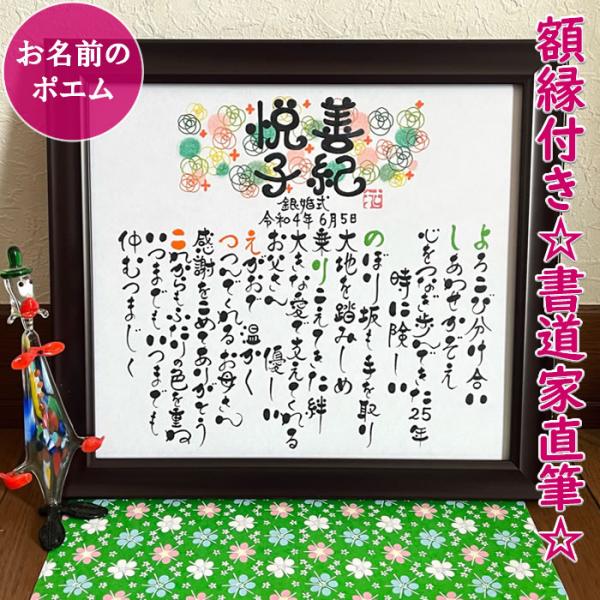 お名前の
ポエム
額縁付き☆書道家直筆☆
善紀
悦子
銀婚式
令和4年6月5日
よろこび分け合い
しあわせかぞえ
心をつなぎ歩んできた25年
時に険しい
のぼり坂も手を取り
大地を踏みしめ
乗りこえてきた絆
大きな愛で支えてくれる
お父さん
優しい
えがおで温かく
つつんでくれるお母さん
感謝をこめてありがとう
これからもふたりの色を重ね
いつまでもいつまでも
仲むつまじく